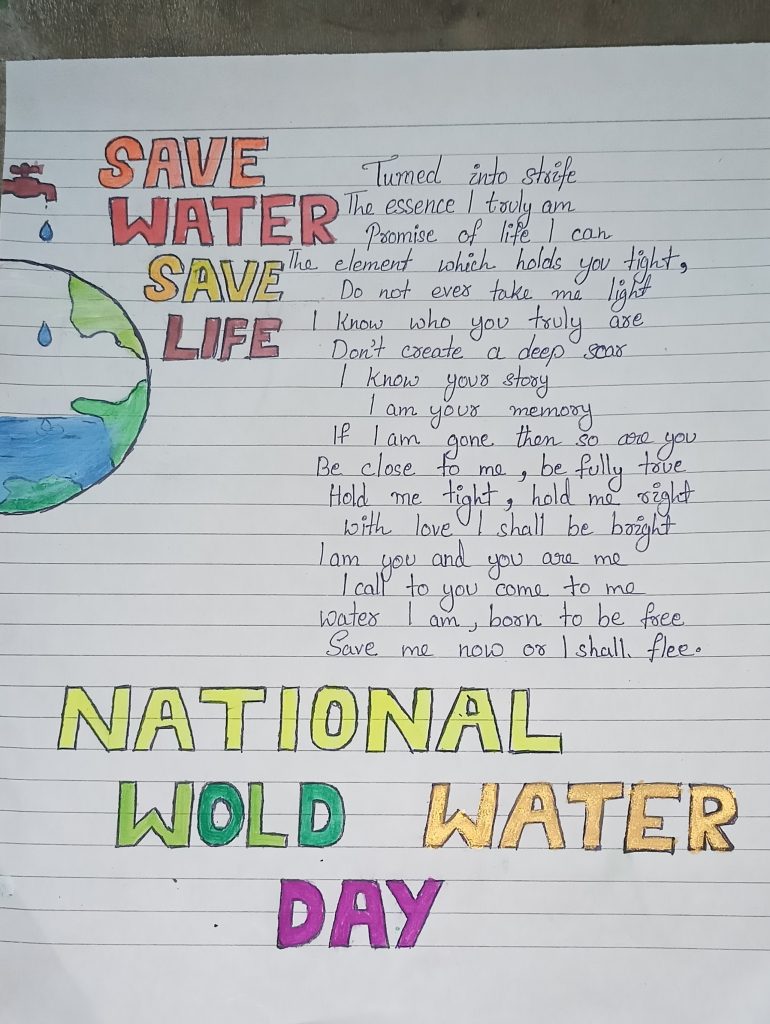 SAVE
WATER
SAVE
LIFE
Turned into strife
The essence I truly am
Promise of life I can
The element which holds you tight,
Do not ever take me light
I Know who you truly are
Don't create a deep scar
I know your story
I am your memory
If I am gone then so are you
Be close to me, be fully true
Hold me tight, hold me right
with love I shall be bright
I am you and you are me
I call to you come to me
water I am, born to be free
Save me now or I shall flee.
NATIONAL
WOLD WATER
DAY